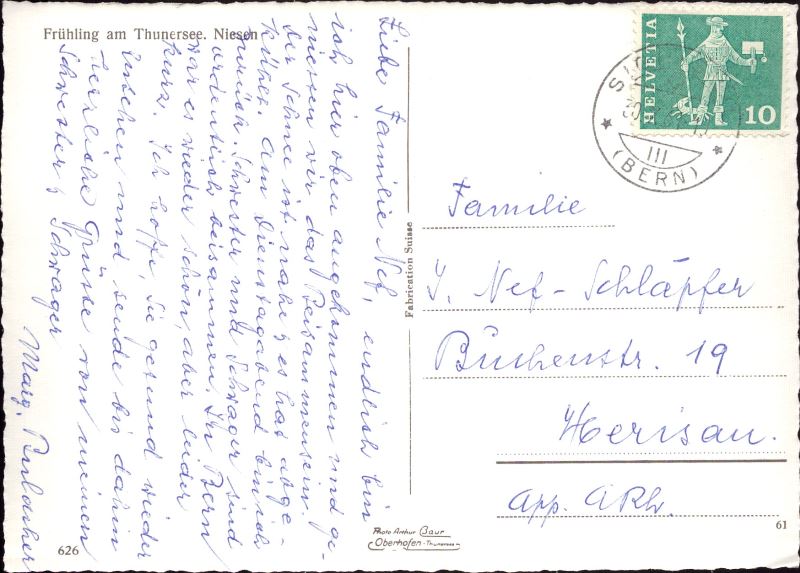 Frühling am Thunersee. Niesen
Liebe Familie Nef, endlich bin
ich hier oben angekommen und ge-
niessen wir das Beisammensein.
Der Schnee ist nahe & es hat abge-
kühlt. Am Dienstagabend bin ich
zurück. Schwester und Schwager sind
ordentlich beisammen. In Bern
war es wieder schön, aber leider
kurz. Ich hoffe, Sie gesund wieder
zusehen und sende bis dahin
herzliche Grüsse von meinen
Schwester & Schwager
Marg.
626
Fabrication Suisse
Photo Arthur Baur
Oberhofen-Thunersee
HELVETIA
10
III
(BERN)
Familie
J. Nef-Schläpfer
Buchenstr. 19
Herisau.
App. A Rh.
61